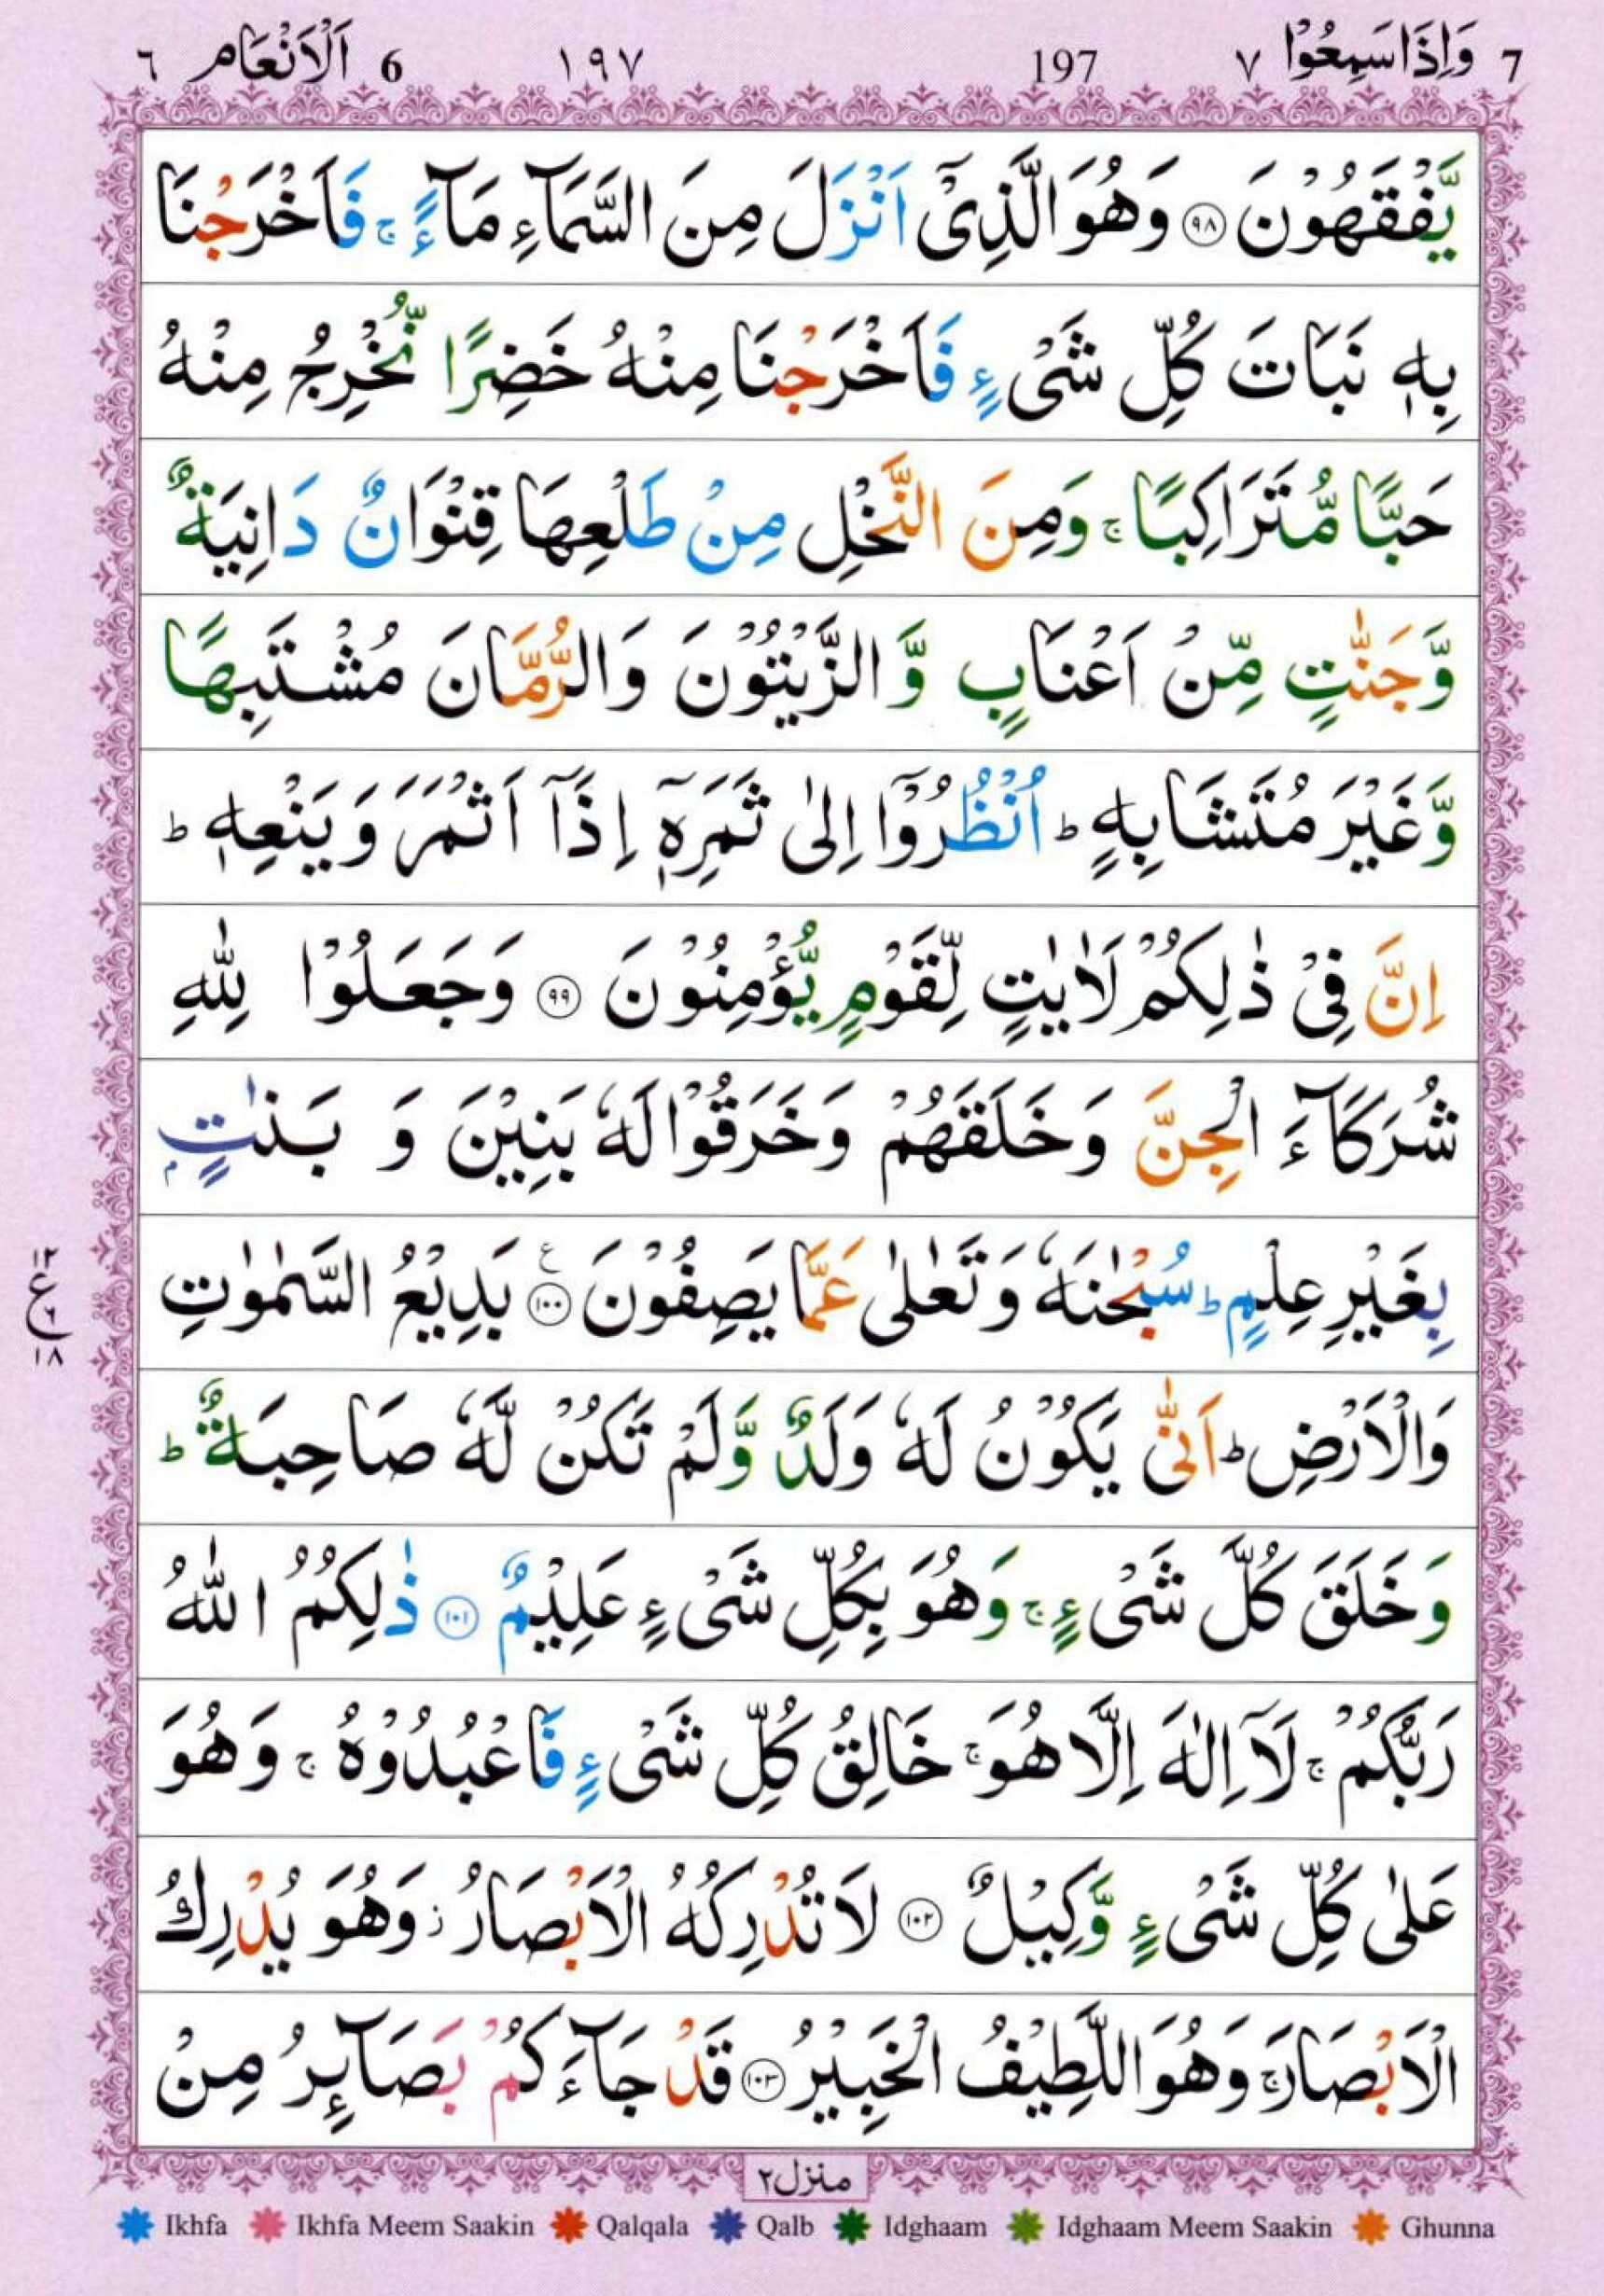 7 وَاِذَا سَمِعُوْا ٧ 197 ١٩٧ 6 اَلْاَنْعَام ٦
يَّفْقَهُوْنَ ﴿۹۸﴾ وَهُوَ الَّذِیْۤ اَنْزَلَ مِنَ السَّمَآءِ مَآءً ۚ فَاَخْرَجْنَا
بِهٖ نَبَاتَ كُلِّ شَیْءٍ فَاَخْرَجْنَا مِنْهُ خَضِرًا نُّخْرِجُ مِنْهُ
حَبًّا مُّتَرَاكِبًا ۚ وَمِنَ النَّخْلِ مِنْ طَلْعِهَا قِنْوَانٌ دَانِیَةٌ
وَّجَنّٰتٍ مِّنْ اَعْنَابٍ وَّ الزَّیْتُوْنَ وَالرُّمَّانَ مُشْتَبِهًا
وَّ غَیْرَ مُتَشَابِهٍ ؕ اُنْظُرُوْۤا اِلٰی ثَمَرِهٖۤ اِذَاۤ اَثْمَرَ وَ یَنْعِهٖ ؕ
اِنَّ فِیْ ذٰلِكُمْ لَاٰیٰتٍ لِّقَوْمٍ یُّؤْمِنُوْنَ ﴿۹۹﴾ وَجَعَلُوْا لِلّٰهِ
شُرَكَآءَ الْجِنَّ وَخَلَقَهُمْ وَخَرَقُوْا لَهٗ بَنِیْنَ وَ بَنٰتٍۭ
بِغَیْرِ عِلْمٍ ؕ سُبْحٰنَهٗ وَ تَعٰلٰی عَمَّا یَصِفُوْنَ ﴿۱۰۰﴾ ع بَدِیْعُ السَّمٰوٰتِ
١٢ ع ٦ ١٨
وَالْاَرْضِ ؕ اَنّٰی یَكُوْنُ لَهٗ وَلَدٌ وَّلَمْ تَكُنْ لَّهٗ صَاحِبَةٌ ؕ
وَ خَلَقَ كُلَّ شَیْءٍ ۚ وَهُوَ بِكُلِّ شَیْءٍ عَلِیْمٌ ﴿۱۰۱﴾ ذٰلِكُمُ اللّٰهُ
رَبُّكُمْ ۚ لَاۤ اِلٰهَ اِلَّا هُوَ ۚ خَالِقُ كُلِّ شَیْءٍ فَاعْبُدُوْهُ ۚ وَهُوَ
عَلٰی كُلِّ شَیْءٍ وَّكِیْلٌ ﴿۱۰۲﴾ لَا تُدْرِكُهُ الْاَبْصَارُ ؗ وَهُوَ یُدْرِكُ
الْاَبْصَارَ ۚ وَهُوَ اللَّطِیْفُ الْخَبِیْرُ ﴿۱۰۳﴾ قَدْ جَآءَكُمْ بَصَآىِٕرُ مِنْ
منزل ٢
Ikhfa Ikhfa Meem Saakin Qalqala Qalb Idghaam Idghaam Meem Saakin Ghunna